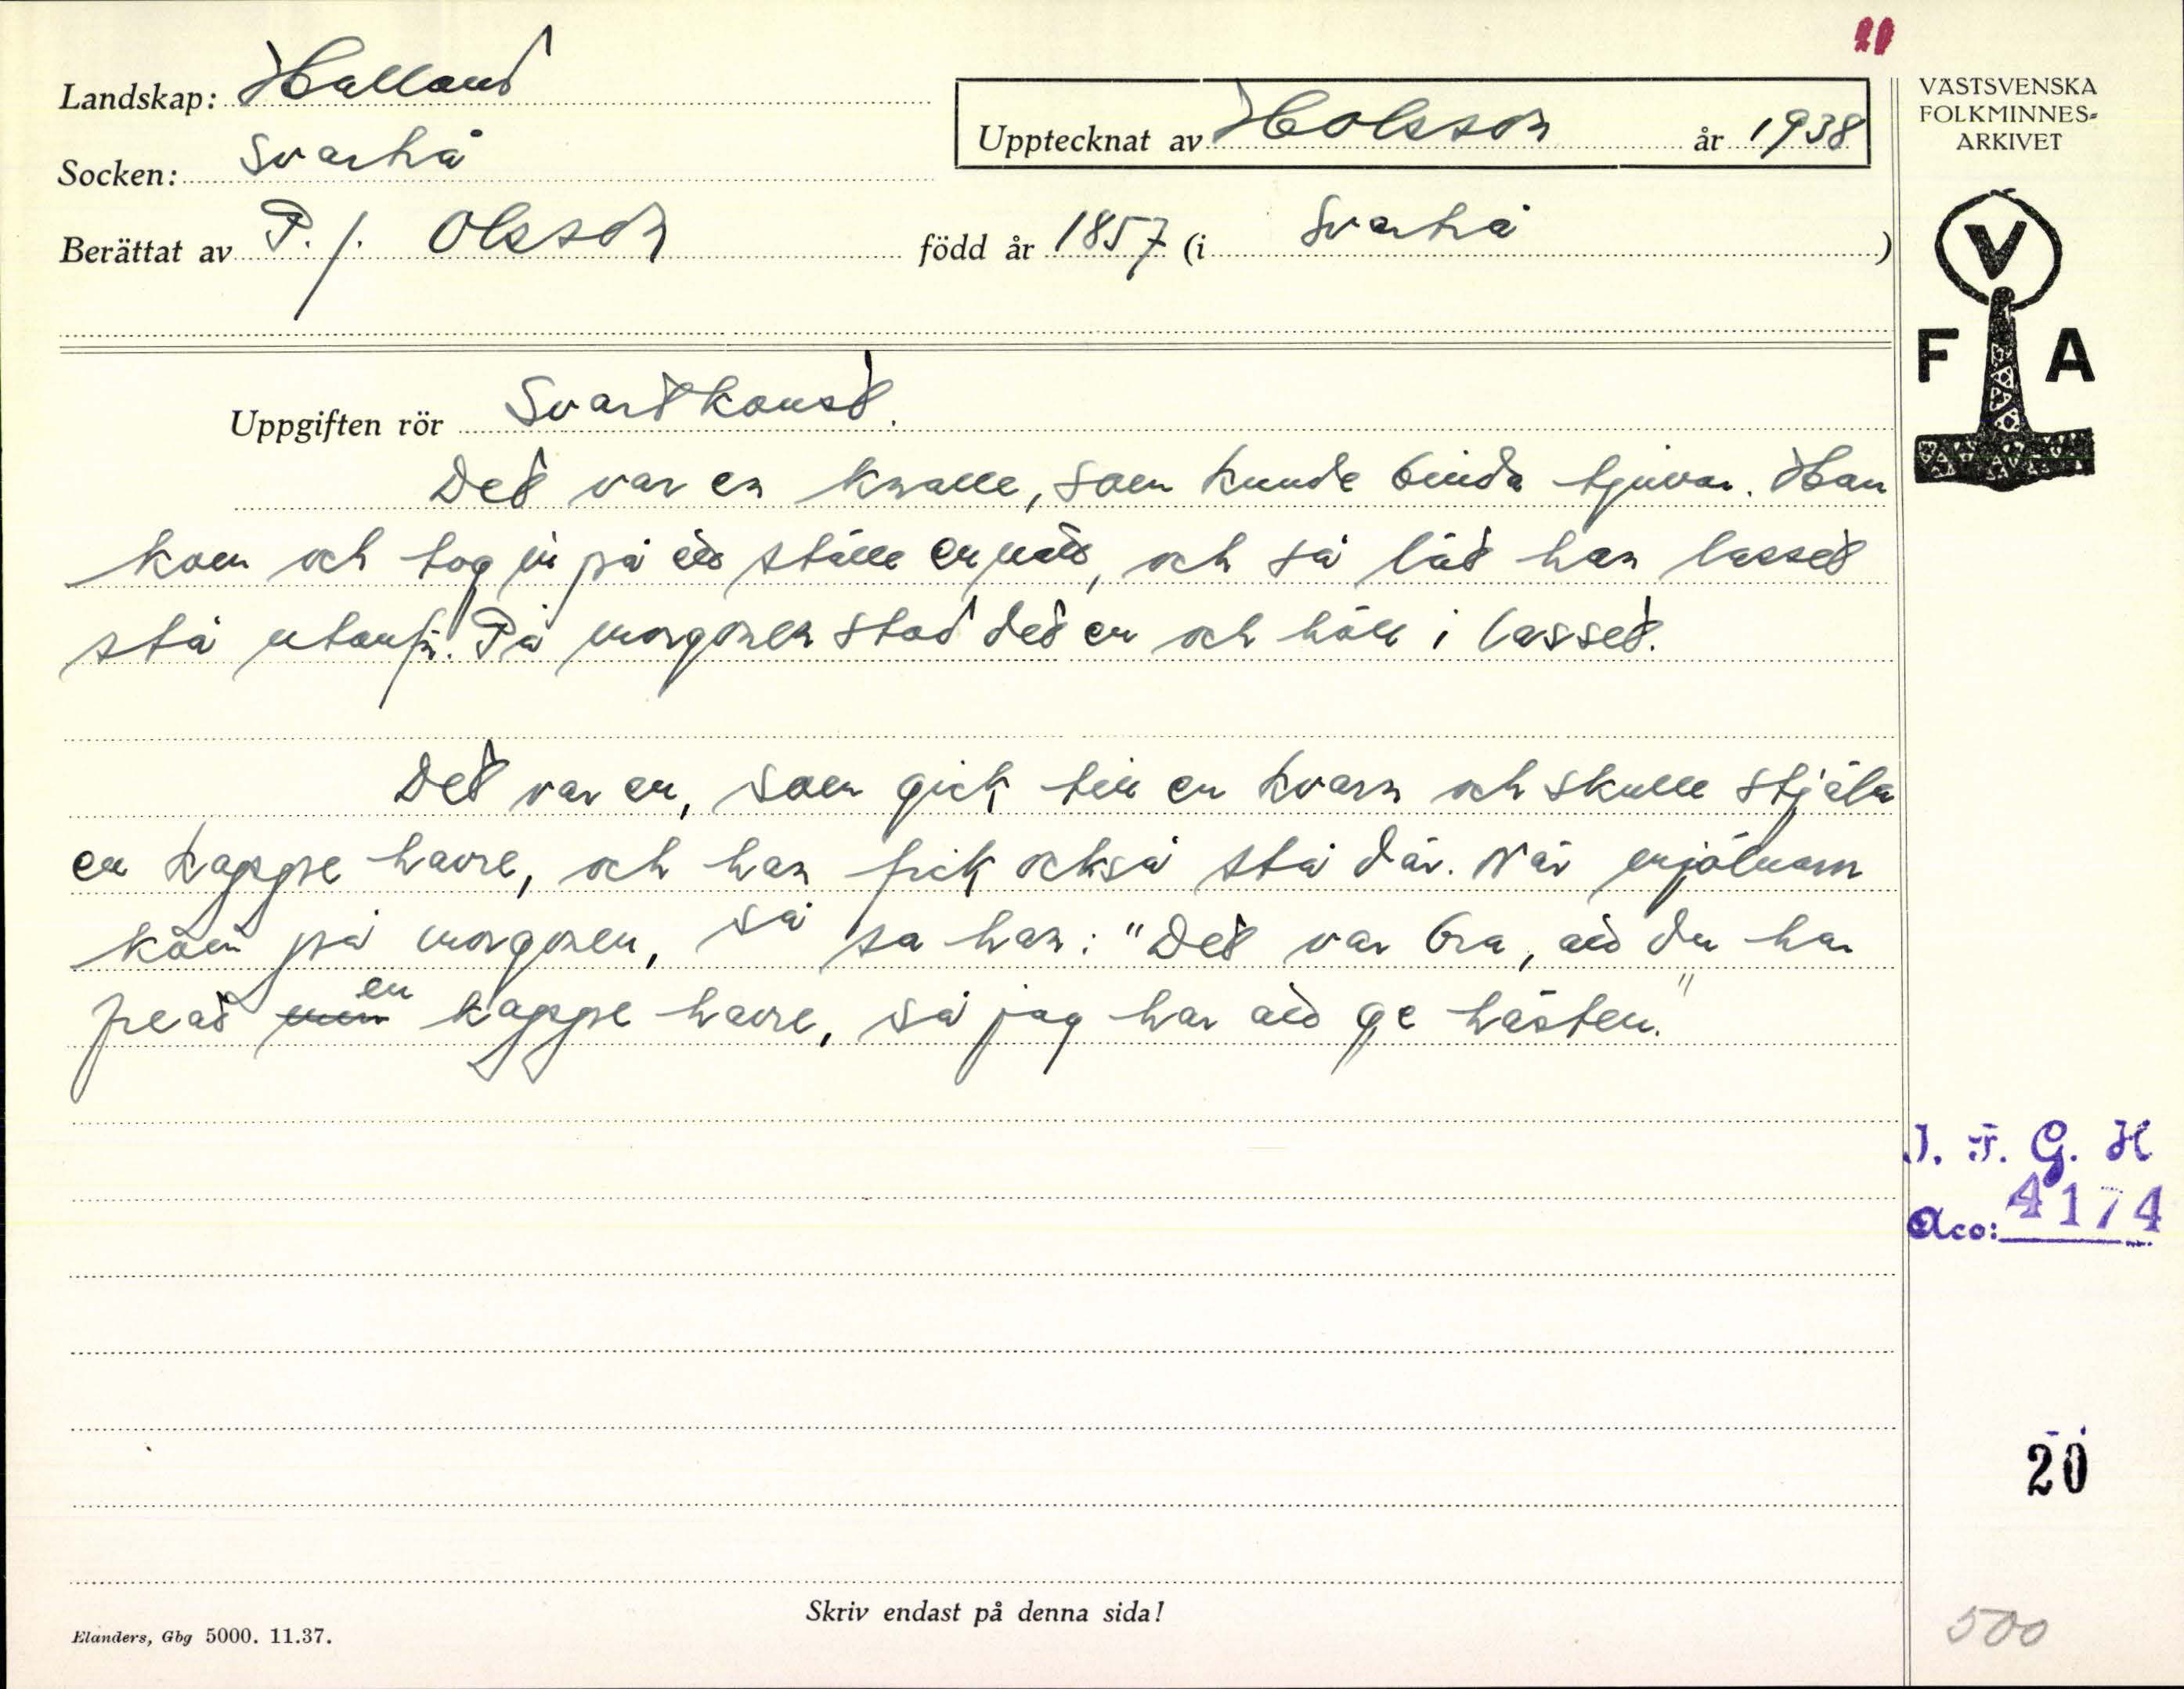 20
Landskap: Halland
Upptecknat av HOlsson år 1938
VÄSTSVENSKA
FOLKMINNES-
ARKIVET
Socken: Svartrå
Berättat av P. J. Olsson född år 1857 (i Svartrå)
V
F A
Uppgiften rör Svartkonst.
Det var en knalle, som kunde binda tjuvar. Han
kom och tog in på ett ställe en natt, och så lät han lasset
stå utanför. På morgonen stod det en och höll i lasset.
Det var en, som gick till en kvarn och skulle stjäla
en kappe havre, och han fick också stå där. När mjölnarn
kom på morgonen, så sa han: "Det var bra, att du har
en
peat min kappe havre, så jag har att ge hästen."
I. F. G. H
Acc: 4174
20
Skriv endast på denna sida!
Elanders, Gbg 5000. 11.37.
500